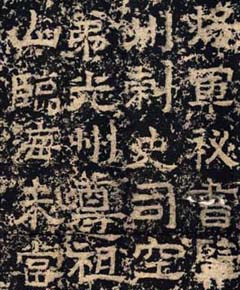 將軍秘書監
州刺史司空
弟光州尊祖
山臨海未嘗